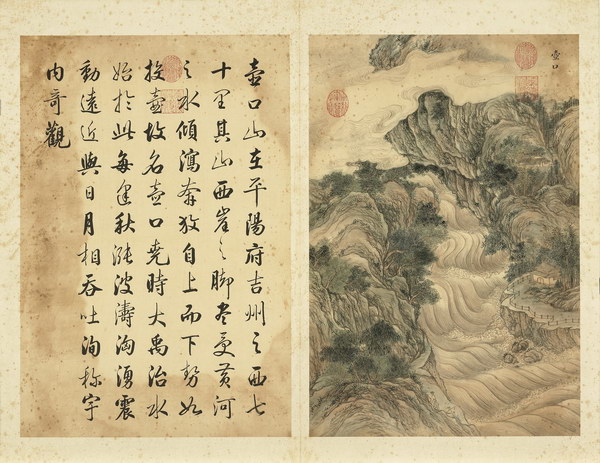 壺口
壺口山在平陽府吉州之西七
十里其山西崖之脚盡受黃河
之水傾瀉奔放自上而下勢如
投壺故名壺口堯時大禹治水
始於此每逢秋漲波濤洶湧震
動遠近與日月相吞吐洵稱宇
内奇觀